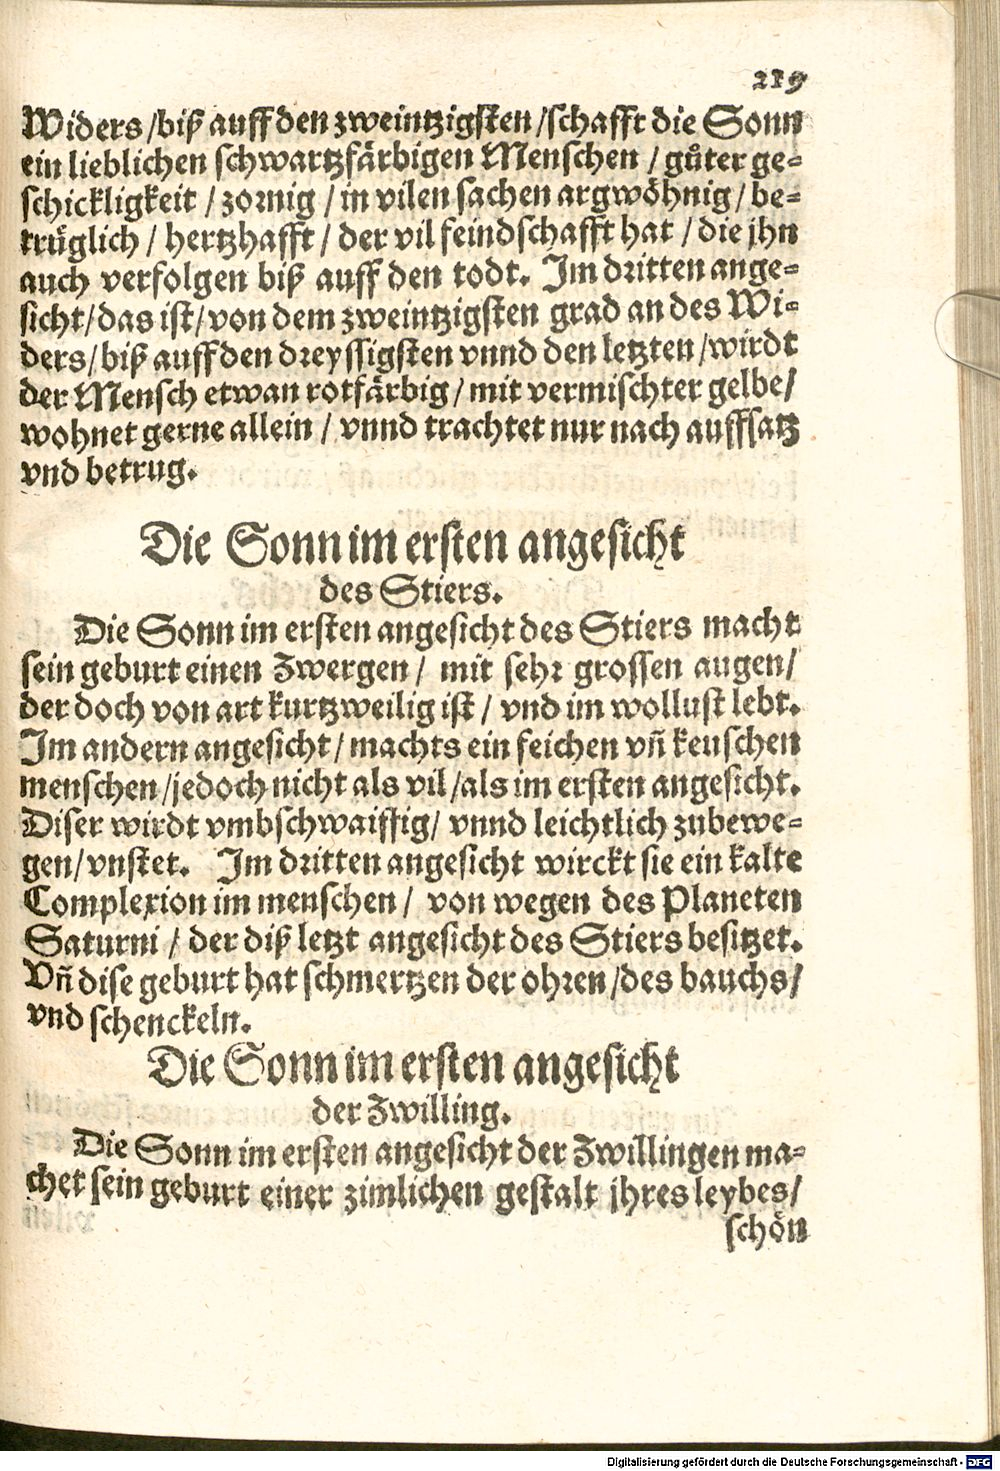 219
Widers/biß auff den zweintzigsten/schafft die Sonn
ein lieblichen schwartzfärbigen Menschen / guͤter ge-
schickligkeit / zornig / in vilen sachen argwöhnig / be-
trüglich / hertzhafft / der vil feindschafft hat / die jhn
auch verfolgen biß auff den todt. Im dritten ange-
sicht/das ist/von dem zweintzigsten grad an des Wi-
ders/biß auff den dreyssigsten vnnd den letzten/wirdt
der Mensch etwan rotfärbig / mit vermischter gelbe/
wohnet gerne allein / vnnd trachtet nur nach auffsatz
vnd betrug.
Die Sonn im ersten angesicht
des Stiers.
Die Sonn im ersten angesicht des Stiers macht
sein geburt einen Zwergen / mit sehr grossen augen/
der doch von art kurtzweilig ist / vnd im wollust lebt.
Im andern angesicht / machts ein feichen vñ keuschen
menschen /jedoch nicht als vil /als im ersten angesicht.
Diser wirdt vmbschwaiffig/ vnnd leichtlich zubewe-
gen/vnstet. Im dritten angesicht wirckt sie ein kalte
Complexion im menschen / von wegen des Planeten
Saturni / der diß letzt angesicht des Stiers besitzet.
Vñ dise geburt hat schmertzen der ohren /des bauchs/
vnd schenckeln.
Die Sonn im ersten angesicht
der Zwilling.
Die Sonn im ersten angesicht der Zwillingen ma-
chet sein geburt einer zimlichen gestalt jhres leybes/
schön
Digitalisierung gefördert durch die Deutsche Forschungsgemeinschaft - DFG